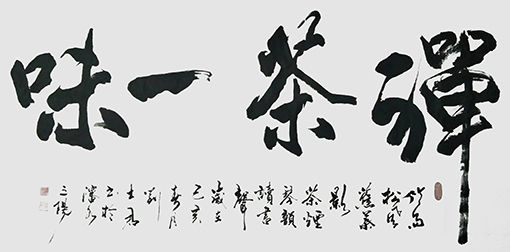 禪茶一味
竹雨
松風
蕉葉
影
茶煙
琴韻
讀書
聲
歲在
己亥
春月
劉
士
書於
瀋水
之陽